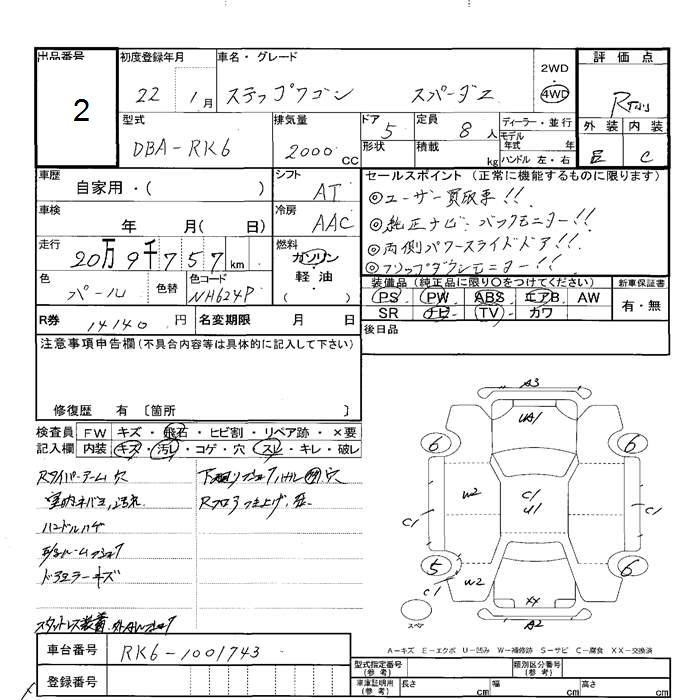 出品番号 初度登録年月 車名・グレード 評価点
2
22 年 1月 ステップワゴン スパーダZ
2WD
4WD
R
型式 排気量 ドア 定員 ディーラー・並行 外装 内装
DBA-RK6 2000cc 5 8人
モデル年式 年
形状 積載 kg ハンドル 左・右
C
車歴 シフト セールスポイント（正常に機能するものに限ります）
自家用・( ) AT
◎ユーザー買取車!!
車検 冷房
年 月( 日) AAC
◎純正ナビ・バックモニター!!
走行 燃料
20万9千757km ガソリン
◎両側パワースライドドア!!
軽・油
( )
◎フリップダウンモニター!!
色 色替 色コード
パール NH624P
装備品（純正品に限り〇をつけてください） 新車保証書
PS PW ABS エアB AW 有・無
SR ナビ (TV) カワ
R券 14140円 名変期限 月 日
後日品
注意事項申告欄(不具合内容等は具体的に記入して下さい)
修復歴 有 〔箇所 〕
検査員 FW キズ・飛石・ヒビ割・リペア跡・×要
記入欄 内装 キズ・汚レ・コゲ・穴・スレ・キレ・破レ
Rタイパーアーム欠
ハンドルハゲ
ドアミラーキズ
A3
UA1
6 6
W2 C1 U1
C1 C1
5 6
C1 W2
XX
スペア A2
A-キズ E-エクボ U-凹み W-補修跡 S-サビ C-腐食 XX-交換済
車台番号 RK6-1001743
登録番号
型式指定番号(参考) 類別区分番号(参考)
車庫証明用(参考) 長さ cm 幅 cm 高さ cm